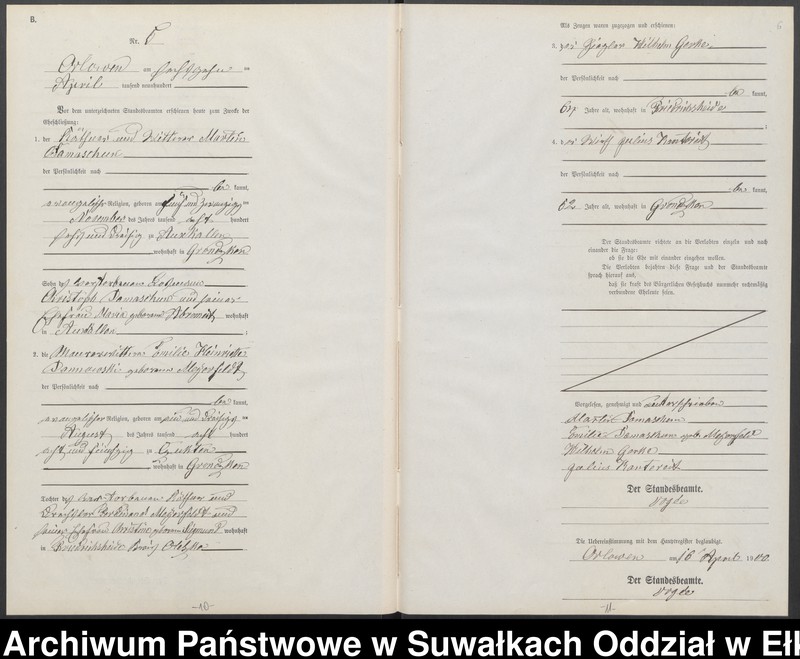 B.
Nr. 5
Orlowen am sechszehn ten
April tausend neunhundert
Vor dem unterzeichneten Standesbeamten erschienen heute zum Zwecke der
Eheschließung:
1. der Käthner und Wittwer Martin
Damaschun
der Persönlichkeit nach
be kannt,
evangelischer Religion, geboren am fünf und zwanzigsten
November des Jahres tausend acht hundert
sechs und dreißig zu
wohnhaft in Grondzken
Sohn des verstorbenen
Christoph Damaschun und seiner
Ehefrau Maria geborene wohnhaft
in ;
2. die Maurerwittwe Emilie Henriette
geborene Meyerfeldt
der Persönlichkeit nach
be kannt,
evangelischer Religion, geboren am ein und dreißigsten
August des Jahres tausend acht hundert
acht und fünfzig zu
wohnhaft in Grondzken
Tochter des verstorbenen Käthner und
Drechsler Ferdinand Meyerfeldt und
seiner Ehefrau Christine geborene Sigmund wohnhaft
in Friedrichsheide Kreis Oletzko
-10-
6
Als Zeugen waren zugezogen und erschienen:
3. der Ziegler Wilhelm Gorke
der Persönlichkeit nach
be kannt,
67 Jahre alt, wohnhaft in Friedrichsheide
;
4. der Wirth Julius Kantereit
der Persönlichkeit nach
be kannt,
62 Jahre alt, wohnhaft in Grondzken
Der Standesbeamte richtete an die Verlobten einzeln und nach
einander die Frage:
ob sie die Ehe mit einander eingehen wollen.
Die Verlobten bejahten diese Frage und der Standesbeamte
sprach hierauf aus,
daß sie kraft des Bürgerlichen Gesetzbuchs nunmehr rechtmäßig
verbundene Eheleute seien.
Vorgelesen, genehmigt und unterschrieben
Martin Damaschun
Emilie Damaschun geb. Meyerfeldt
Wilhelm Gorke
Julius Kantereit
Der Standesbeamte.
Vogle
Die Uebereinstimmung mit dem Hauptregister beglaubigt.
Orlowen am 16 April 1900.
Der Standesbeamte.
Vogle
-11-
Archiwum Państwowe w Suwałkach Oddział w Ełk